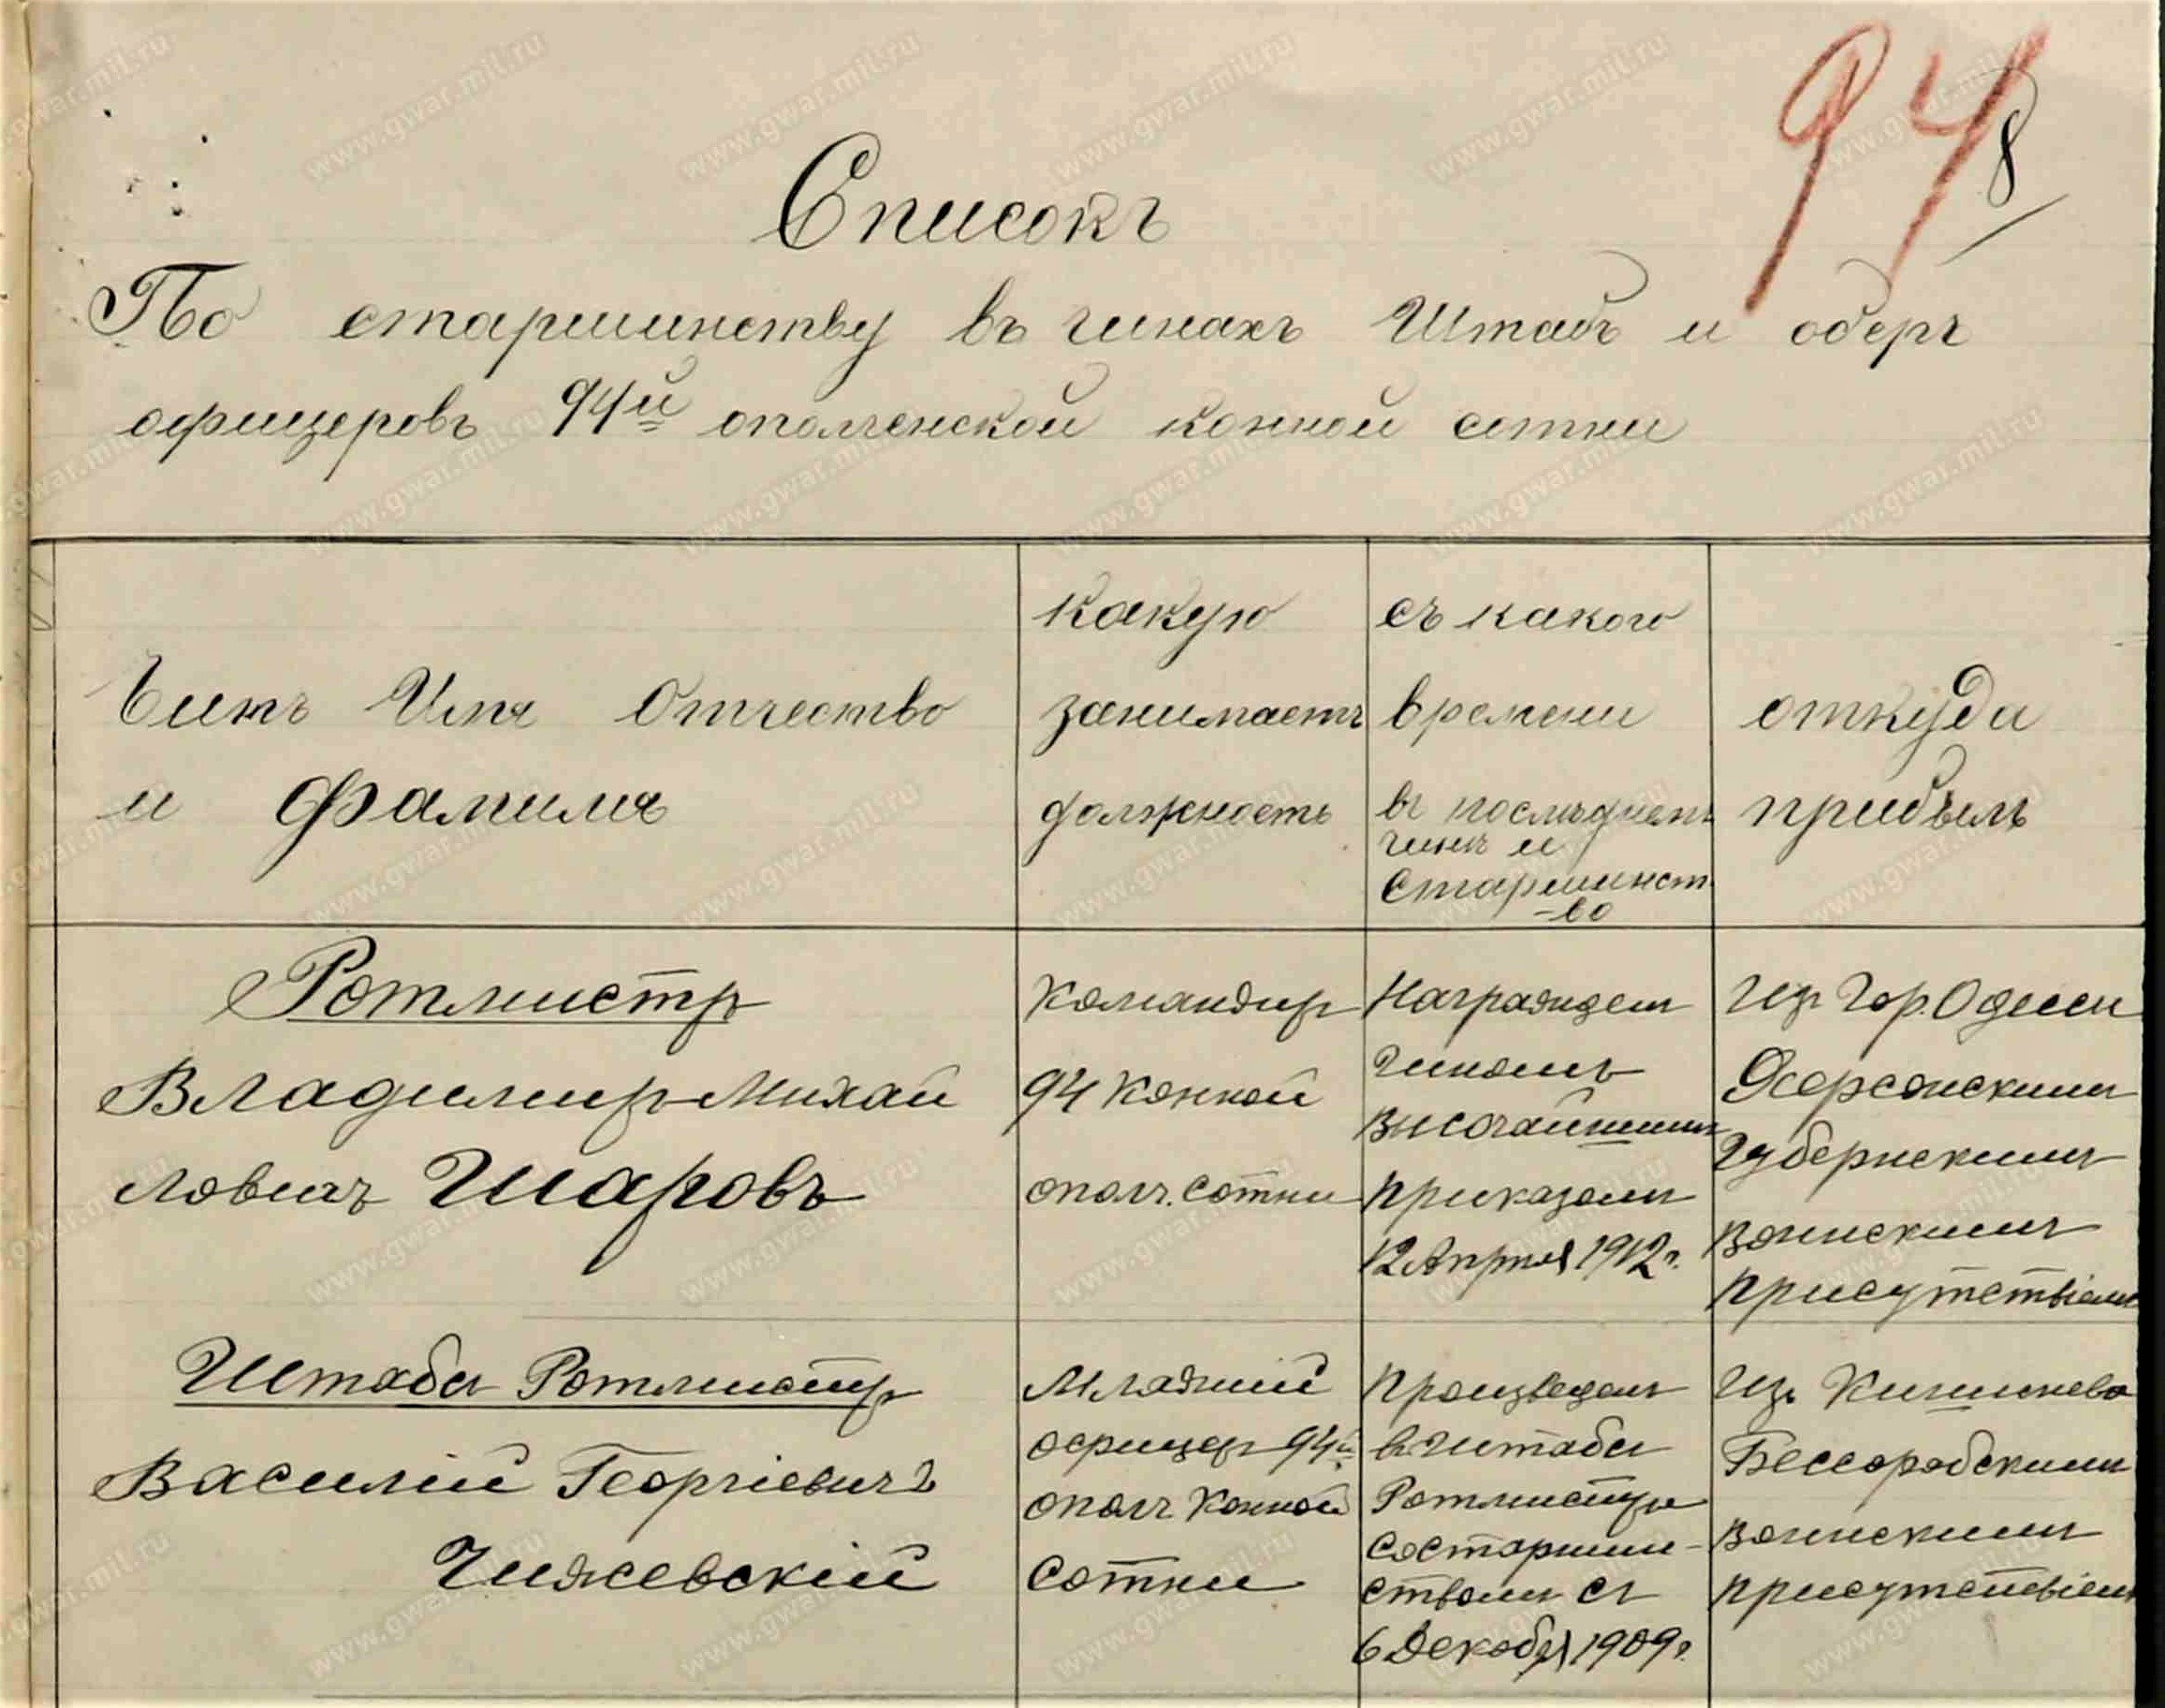 94
8
Списокъ
По старшинству въ чинахъ Штабъ и оберъ
офицеровъ 94й ополченской конной сотни
Чинъ Имя Отчество
и Фамилия
какую
занимаетъ
должность
съ какого
времени
въ последнемъ
чинѣ и
Старшинст
-во
откуда
прибылъ
Ротмистръ
Владимиръ Михай
ловичъ Шаровъ
Командиръ
94 Конной
ополч. Сотни
Награжденъ
Чиномъ
Высочайшимъ
приказомъ
12 Апреля 1912 г.
Изъ Гор. Одессы
Херсонскимъ
Губернскимъ
Воинскимъ
Присутствіемъ
Штабсъ Ротмистръ
Василій Георгіевичъ
Чижевскій
Младший
офицеръ 94й
ополч Конной
Сотни
Произведенъ
въ Штабсъ
Ротмистры
Состаршин-
ствомъ съ
6 Декабря 1909 г.
Изъ Кишинева
Бессарабскимъ
Воинскимъ
присутствіемъ
www.gwar.mil.ru